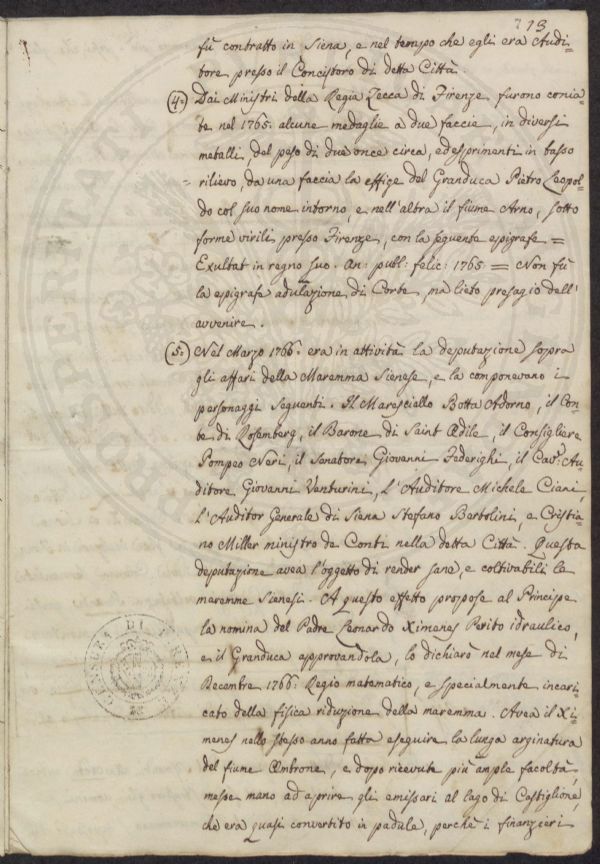 713
fù contratto in Siena, e nel tempo che egli era Audi=
tore presso il Concistoro di detta Città.
(4.) Dai Ministri della Regia Zecca di Firenze furono conia=
te nel 1765. alcune medaglie a due faccie, in diversi
metalli, del peso di due once circa, ed esprimenti in basso
= rilievo, da una faccia la effige del Granduca Pietro Leopol=
do col suo nome intorno, e nell'altra il fiume Arno, sotto
forme virili presso Firenze, con la seguente epigrafe =
Exultat in regno suo. An: publ: felic: 1765 = Non fù
la epigrafe adulazione di Corte, ma lieto presagio dell'
avvenire.
(5.) Nel Marzo 1766. era in attività la deputazione sopra
gli affari della Maremma Sienese, e la componevano i
personaggi seguenti. Il Maresciallo Botta Adorno, il Con=
te di Rosemberg, il Barone di Saint Odile, il Consigliere
Pompeo Neri, il Senatore Giovanni Federighi, il Cav.r Au=
ditore Giovanni Venturini, L'Auditore Michele Ciani,
L'Auditor Generale di Siena Stefano Bertolini, e Cristia=
no Miller ministro de Conti nella detta Città. Questa
deputazione avea l'oggetto di render sane, e coltivabili le
maremme Sienesi. A questo effetto propose al Principe
la nomina del Padre Leonardo Ximenes Perito idraulico,
e il Granduca approvandola, lo dichiarò nel mese di
Decembre 1766. Regio matematico, e specialmente incari=
cato della fisica riduzione della maremma. Avea il Xi=
menes nello stesso anno fatta eseguire la lunga arginatura
del fiume Ombrone, e dopo ricevute più ample facoltà,
messe mano ad aprire gli emissari al lago di Castiglione,
che era quasi convertito in padule, perchè i finanzieri